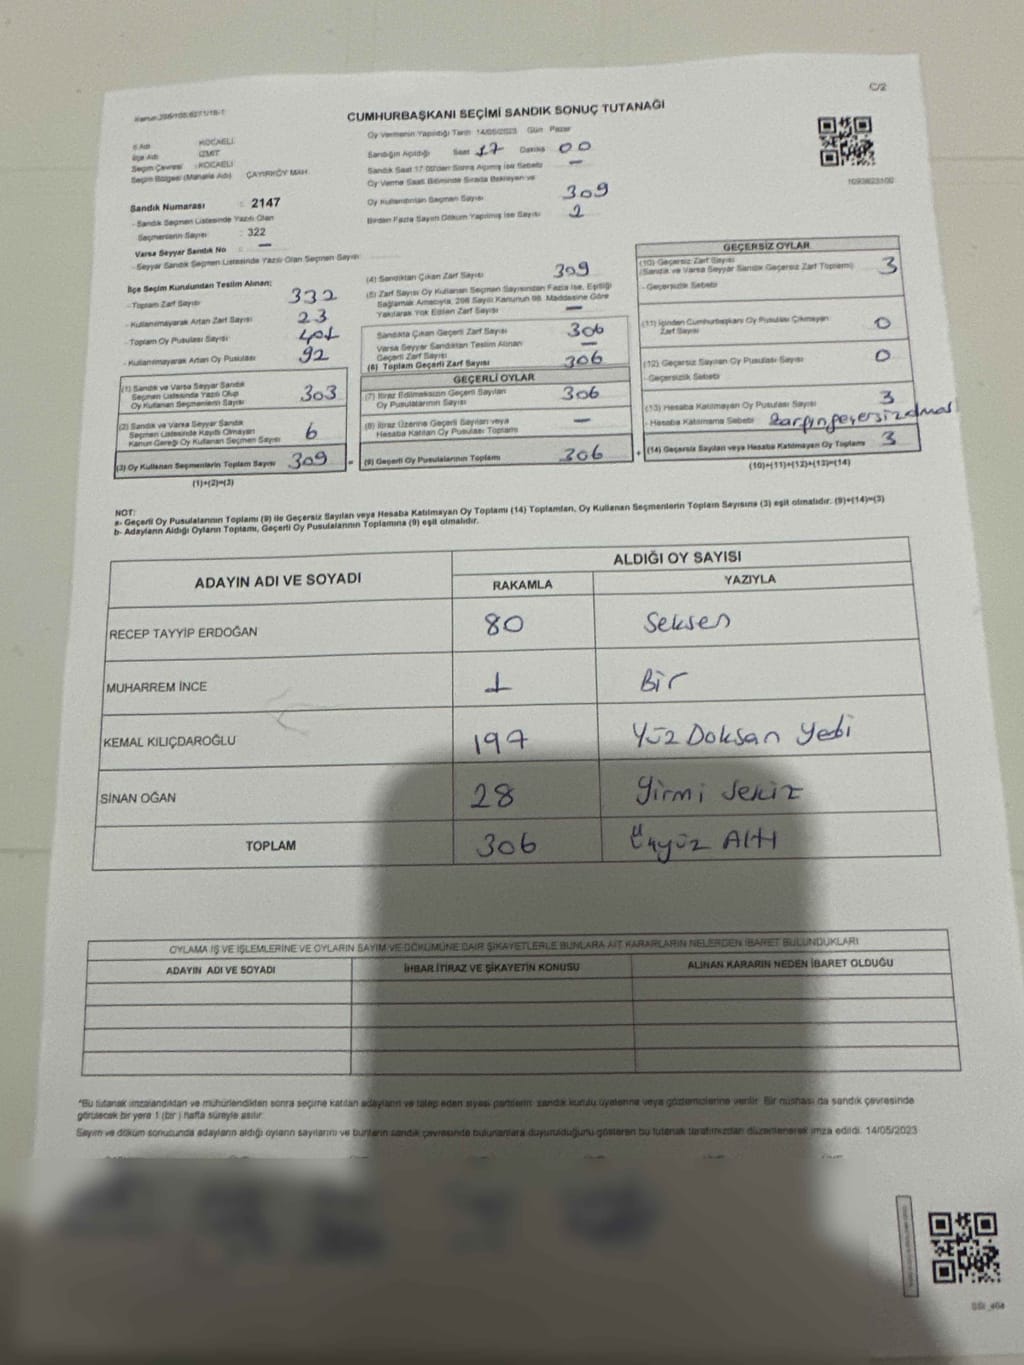 C/2
CUMHURBAŞKANI SEÇİMİ SANDIK SONUÇ TUTANAĞI
Oy Vermenin Yapıldığı Tarih 14/05/2023 Gün Pazar
İl Adı KOCAELİ
İlçe Adı İZMİT
Seçim Çevresi : KOCAELİ
Seçim Bölgesi (Mahalle Adı) ÇAYIRKÖY MAH.
Sandığın Açıldığı Saat 17 Dakika 00
Sandık Saat 17:00'den Sonra Açılmış İse Sebebi —
Oy Verme Saati Bitiminde Sırada Bekleyen ve
Oy Kullandırılan Seçmen Sayısı 309
Birden Fazla Sayım Döküm Yapılmış İse Sayısı 2
Sandık Numarası : 2147
- Sandık Seçmen Listesinde Yazılı Olan
Seçmenlerin Sayısı : 322
Varsa Seyyar Sandık No —
- Seyyar Sandık Seçmen Listesinde Yazılı Olan Seçmen Sayısı
İlçe Seçim Kurulundan Teslim Alınan;
- Toplam Zarf Sayısı 332
- Kullanılmayarak Artan Zarf Sayısı 23
- Toplam Oy Pusulası Sayısı 401
- Kullanılmayarak Artan Oy Pusulası 92
(1) Sandık ve Varsa Seyyar Sandık
Seçmen Listesinde Yazılı Olup
Oy Kullanan Seçmenlerin Sayısı 303
(2) Sandık ve Varsa Seyyar Sandık
Seçmen Listesinde Kayıtlı Olmayan
Kanun Gereği Oy Kullanan Seçmen Sayısı 6
(3) Oy Kullanan Seçmenlerin Toplam Sayısı 309
(1)+(2)=(3)
(4) Sandıktan Çıkan Zarf Sayısı 309
(5) Zarf Sayısı Oy Kullanan Seçmen Sayısından Fazla İse, Eşitliği
Sağlamak Amacıyla, 298 Sayılı Kanunun 98. Maddesine Göre
Yakılarak Yok Edilen Zarf Sayısı —
Sandıkta Çıkan Geçerli Zarf Sayısı 306
Varsa Seyyar Sandıktan Teslim Alınan
Geçerli Zarf Sayısı —
(6) Toplam Geçerli Zarf Sayısı 306
GEÇERLİ OYLAR
(7) İtiraz Edilmeksizin Geçerli Sayılan
Oy Pusulalarının Sayısı 306
(8) İtiraz Üzerine Geçerli Sayılan veya
Hesaba Katılan Oy Pusulası Toplamı —
= (9) Geçerli Oy Pusulalarının Toplamı 306
GEÇERSİZ OYLAR
(10) Geçersiz Zarf Sayısı
(Sandık ve Varsa Seyyar Sandık Geçersiz Zarf Toplamı) 3
- Geçersizlik Sebebi
(11) İçinden Cumhurbaşkanı Oy Pusulası Çıkmayan
Zarf Sayısı 0
(12) Geçersiz Sayılan Oy Pusulası Sayısı 0
- Geçersizlik Sebebi
(13) Hesaba Katılmayan Oy Pusulası Sayısı 3
- Hesaba Katılmama Sebebi
+ (14) Geçersiz Sayılan veya Hesaba Katılmayan Oy Toplamı 3
(10)+(11)+(12)+(13)=(14)
NOT:
a- Geçerli Oy Pusulalarının Toplamı (9) ile Geçersiz Sayılan veya Hesaba Katılmayan Oy Toplamı (14) Toplamları, Oy Kullanan Seçmenlerin Toplam Sayısına (3) eşit olmalıdır. (9)+(14)=(3)
b- Adayların Aldığı Oyların Toplamı, Geçerli Oy Pusulalarının Toplamına (9) eşit olmalıdır.
ADAYIN ADI VE SOYADI ALDIĞI OY SAYISI
RAKAMLA YAZIYLA
RECEP TAYYİP ERDOĞAN 80 Seksen
MUHARREM İNCE 1 Bir
KEMAL KILIÇDAROĞLU 197 Yüz Doksan Yedi
SİNAN OĞAN 28 Yirmi Sekiz
TOPLAM 306 Üçyüz Altı
OYLAMA İŞ VE İŞLEMLERİNE VE OYLARIN SAYIM VE DÖKÜMÜNE DAİR ŞİKAYETLERLE BUNLARA AİT KARARLARIN NELERDEN İBARET BULUNDUKLARI
ADAYIN ADI VE SOYADI İHBAR,İTİRAZ VE ŞİKAYETİN KONUSU ALINAN KARARIN NEDEN İBARET OLDUĞU
*Bu tutanak imzalandıktan ve mühürlendikten sonra seçime katılan adayların ve talep eden siyasi partilerin sandık kurulu üyelerine veya gözlemcilerine verilir. Bir nüshası da sandık çevresinde
görülecek bir yere 1 (bir) hafta süreyle asılır.
Sayım ve döküm sonucunda adayların aldığı oyların sayılarını ve bunların sandık çevresinde bulunanlara duyurulduğunu gösteren bu tutanak tarafımızdan düzenlenerek imza edildi. 14/05/2023